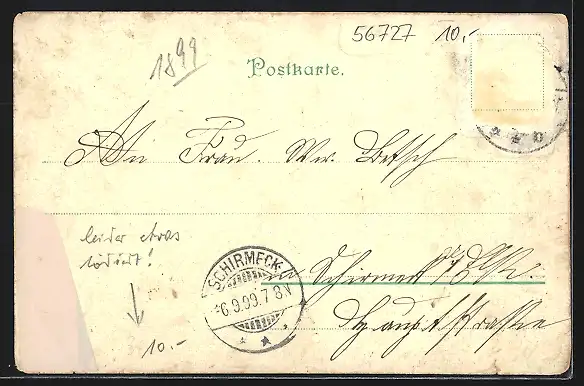 56727 10,-
1899
Postkarte.
An Frau. Ww. Betsch
leider etwas
lädiert!
SCHIRMECK
6.9.99.7-8N
in Schirmeck
Hauptstrasse
10.-